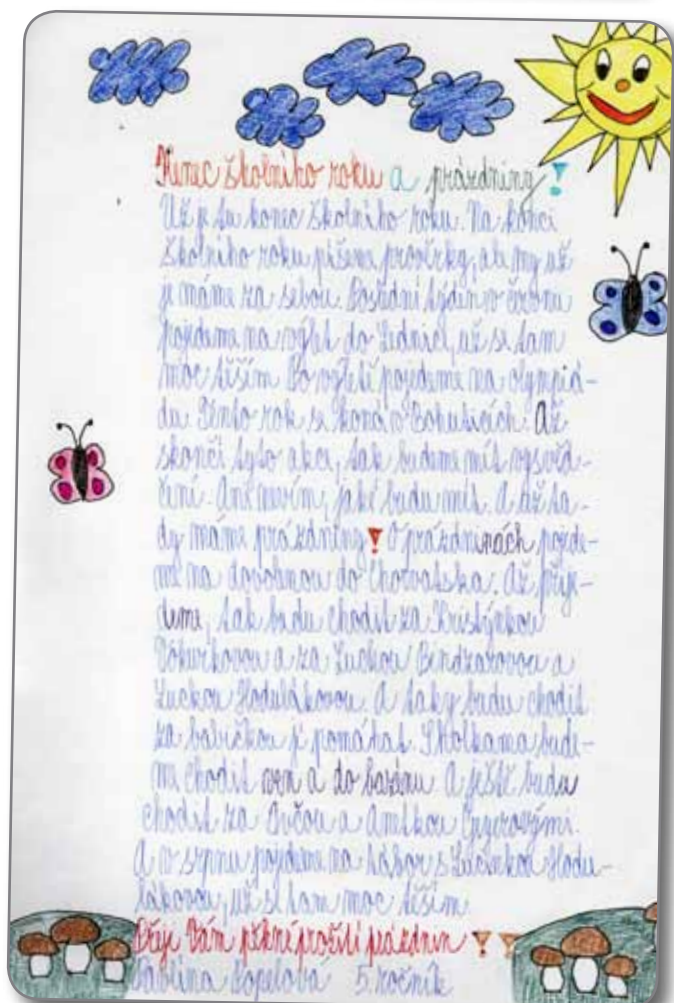 Konec školního roku a prázdniny!
Už je tu konec školního roku. Na konci
školního roku píšeme prověrky, ale my už
je máme za sebou. Poslední týden v červnu
pojedeme na výlet do Lednice, už se tam
moc těším. Po výletě pojedeme na olympiá-
du. Tento rok se koná v Bohuticích. Až
skončí tyto akce, tak budeme mít vysvěd-
čení. Ani nevím, jaké budu mít. A až ta-
dy máme prázdniny! O prázdninách pojede-
me na dovolenou do Chorvatska. Až přije-
deme, tak budu chodit za Kristýnkou
a za Luckou a
Luckou Hodulákovou. A taky budu chodit
za babičkou jí pomáhat. S holkama bude-
me chodit ven a do bazénu. A ještě budu
chodit za a
A v srpnu pojedeme na tábor s Lucinkou Hodu-
lákovou, už se tam moc těším.
Přeji Vám pěkné prožití prázdnin !!
Pavlína 5. ročník